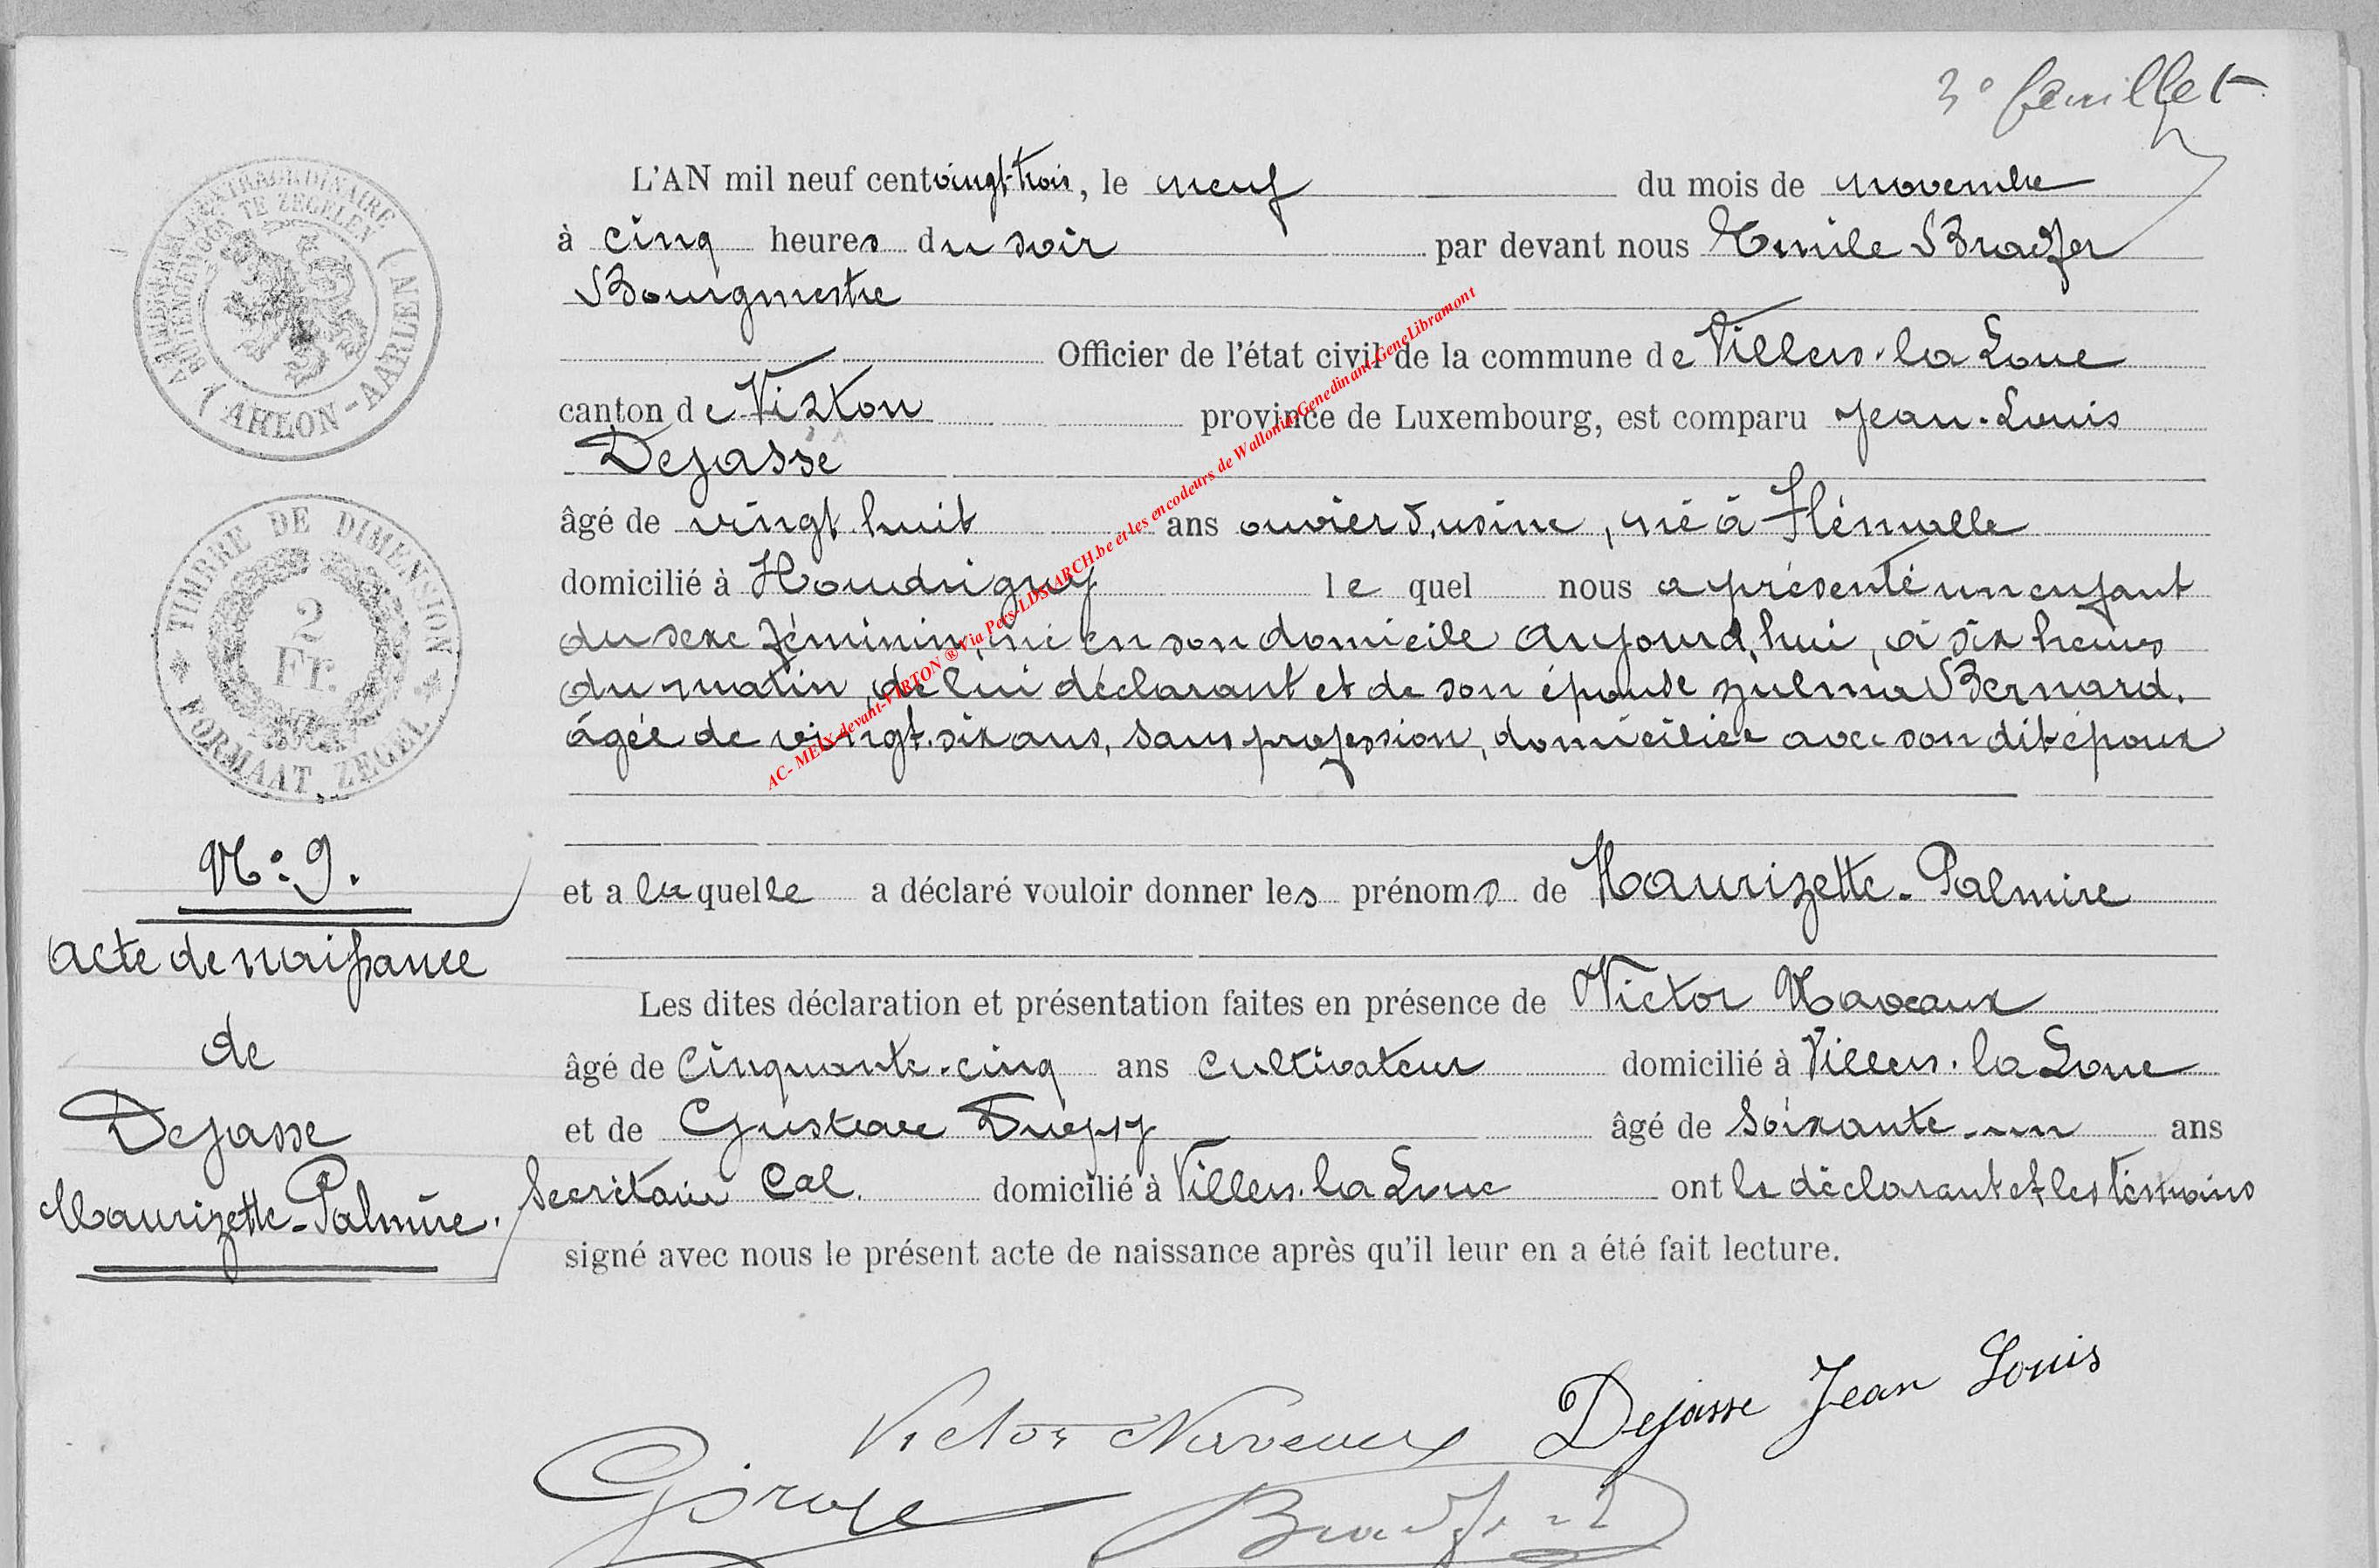 3e feuillet
L'AN mil neuf cent vingt-trois, le neuf du mois de novembre
à cinq heures du soir par devant nous Emile Bradfer
Bourgmestre
Officier de l'état civil de la commune de Villers-la-Loue
canton de Virton province de Luxembourg, est comparu Jean-Louis
Dejasse
âgé de vingt huit ans ouvrier d'usine, né à Flémalle
domicilié à Houdrigny lequel nous a présenté un enfant
du sexe féminin, né en son domicile aujourd'hui, à six heures
du matin, de lui déclarant et de son épouse Zulma Bernard,
âgée de vingt-six ans, sans profession, domiciliée avec son dit époux
et a laquelle a déclaré vouloir donner les prénoms de Maurizette-Palmire
Les dites déclaration et présentation faites en présence de Victor Naveaux
âgé de cinquante-cinq ans cultivateur domicilié à Villers-la-Loue
et de Gustave âgé de soixante-un ans
Secrétaire Cal. domicilié à Villers-la-Loue ont le déclarant et les témoins
signé avec nous le présent acte de naissance après qu'il leur en a été fait lecture.
TIMBRE EXTRAORDINAIRE
BUITENGEWOON TE ZEGELEN
ARLON-AARLEN
TIMBRE DE DIMENSION
2
Fr.
FORMAAT ZEGEL
No: 9.
acte de naissance
de
Dejasse
Maurizette-Palmire.
AC- MEIX-devant-VIRTON ® Via Pers-LDS-ARCH.be et les encodeurs de Wallonia-Genedinant-GeneLibramont
Victor Naveaux Dejasse Jean Louis
Bradfer